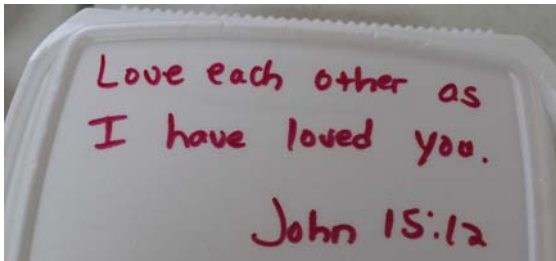 Love each other as
I have loved you.
John 15:12